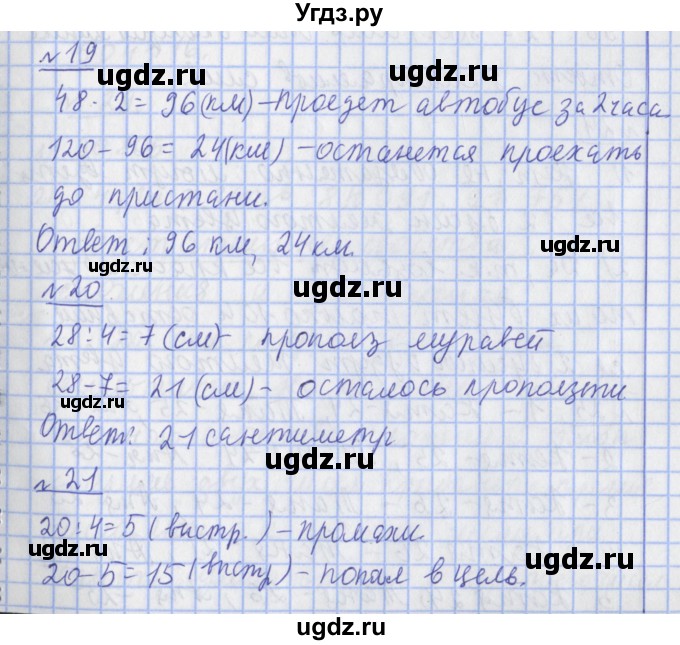 Угдз.ру
№19
ugdz.ru
48·2=96(км)-проедет автобус за 2 часа.
ugdz.ru ugdz.ru
120-96=24(км)-останется проехать
до пристани.
ugdz.ru
Ответ: 96 км, 24 км.
ugdz.ru
№20
ugdz.ru
28:4=7(см)- прополз муравей
ugdz.ru
28-7=21(см)- осталось проползти
ugdz.ru
Ответ: 21 сантиметр
ugdz.ru
№21
20:4=5(выстр.)-промахи.
ugdz.ru ugdz.ru
20-5=15(выстр)-попал в цель.
ugdz.ru